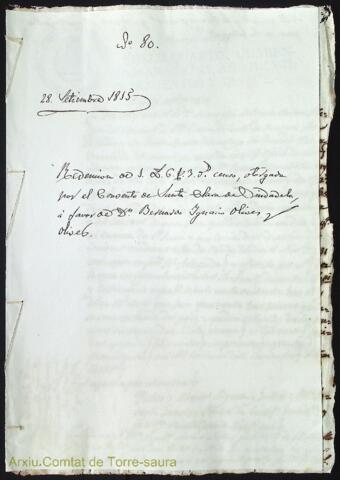 Nº 80.
28. Setiembre 1815
Redencion de 1. L 6 s. 3. ds. censo, otorgada
por el Convento de Santa Clara de Ciudadela,
á favor de Dn. Bernardo Ignacio Olives y
Olives.
Arxiu.Comtat de Torre-saura